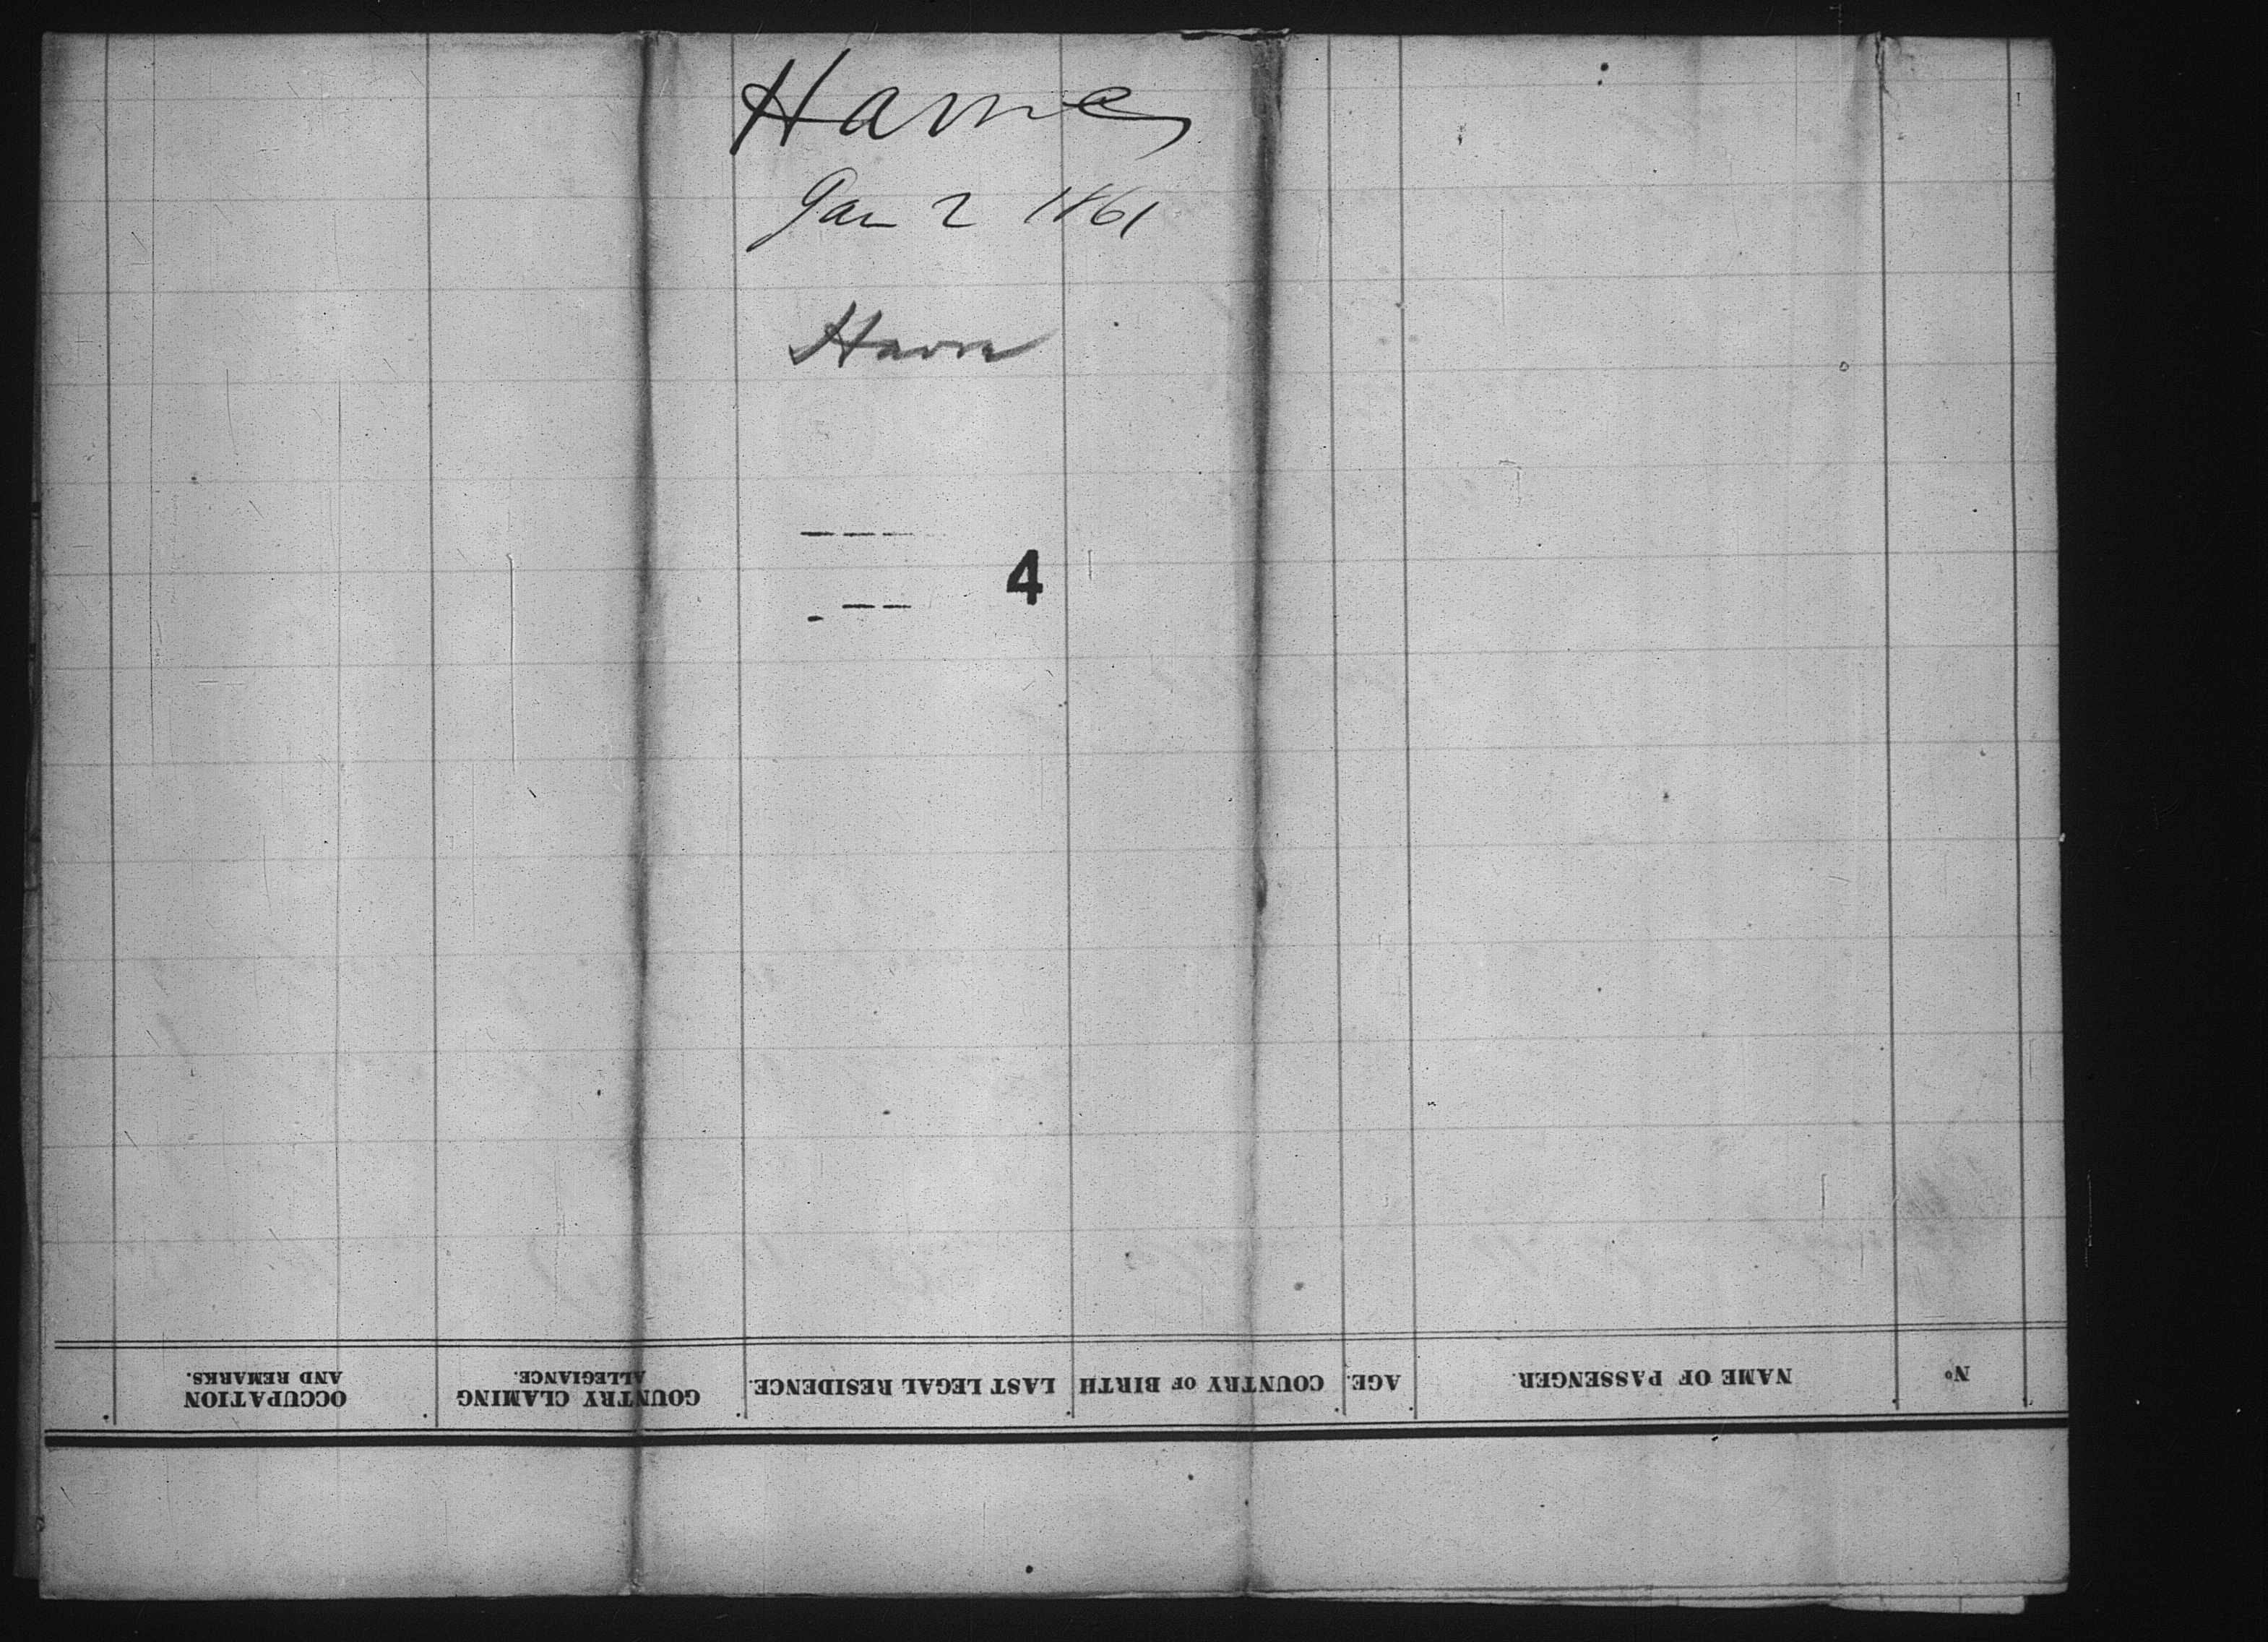 Havre
Jan 2 1861
Havre
4
No
NAME OF PASSENGER.
AGE.
COUNTRY OF BIRTH
LAST LEGAL RESIDENCE.
COUNTRY CLAMING
ALLEGIANCE.
OCCUPATION
AND REMARKS.